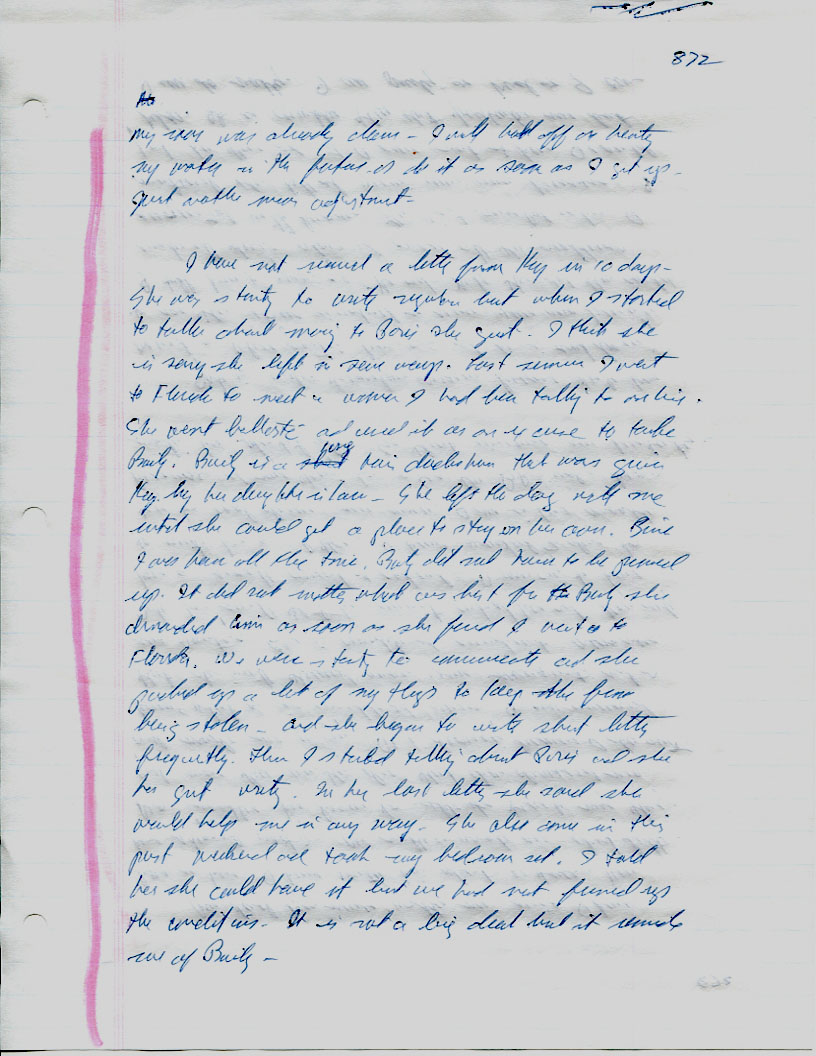 872
my was already clean - I will hold off on heating
my water in the future or do it as soon as I get up -
Just another minor adjustment -
I have not received a letter from Kay in 10 days -
She was starting to write regular but when I started
to talk about moving to Boris she quit. I think she
is sorry she left in some ways. Last summer I went
to Florida to meet a woman I had been talking to on line.
She went ballistic and used it as an excuse to take
Baily. Baily is a long hair dachshund that was given
Kay by her daughter in law - She left the dog with me
until she could get a place to stay on her own. Since
I was home all the time, Baily did not have to be penned
up. It did not matter what was best for Baily she
demanded him as soon as she found I went to
Florida. We were starting to communicate and she
picked up a lot of my things to keep from
being stolen - and she began to write short letters
frequently. Then I started talking about Boris and she
has quit writing. In her last letter she said she
would help me in any way. She also came in this
past weekend and took my bedroom set. I told
her she could have it but we had not firmed up
the conditions. It is not a big deal but it reminds
me of Baily -